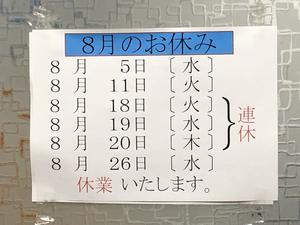 8月のお休み
8月 5日〔水〕
8月 11日〔火〕
8月 18日〔火〕
8月 19日〔水〕
8月 20日〔木〕
連休
8月 26日〔水〕
休業いたします。